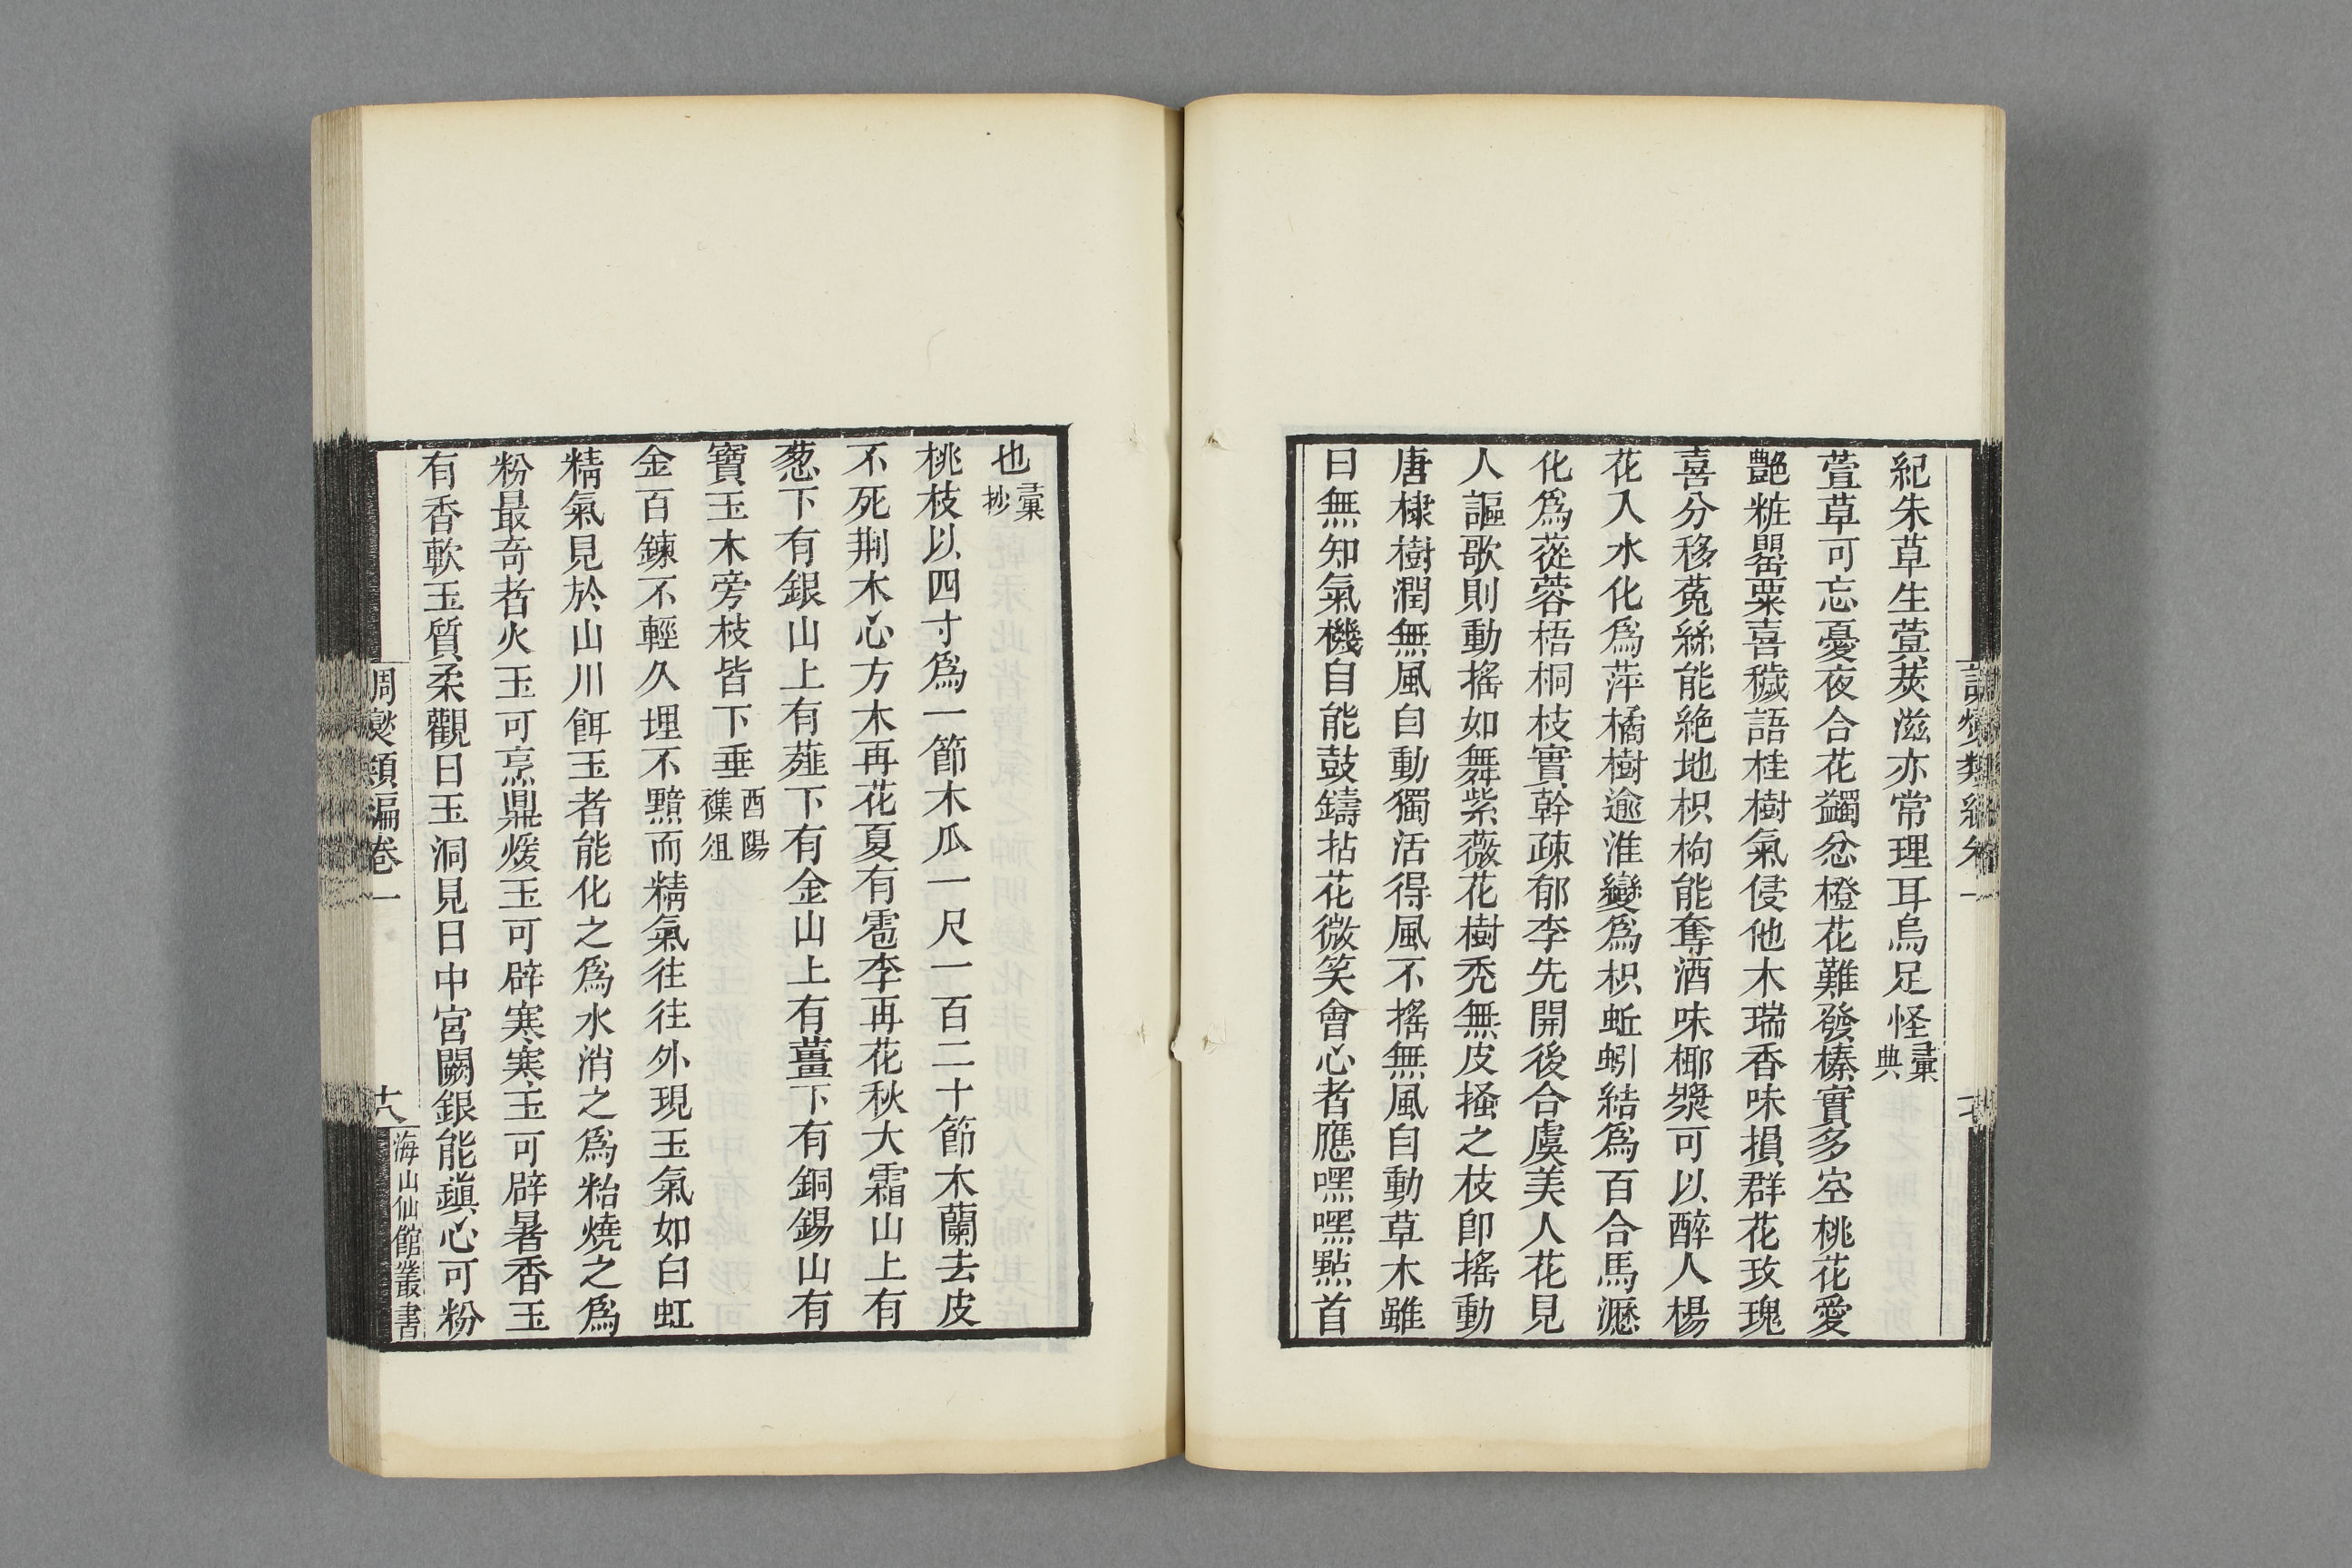 紀朱草生蓂莢滋亦常理耳烏足怪彚典
萱草可忘憂夜合花蠲忿橙花難發榛實多空桃花愛
艷粧罌粟喜穢語桂樹氣侵他木瑞香味損群花玫瑰
喜分移菟絲能絶地枳枸能奪酒味椰漿可以醉人楊
花入水化爲萍橘樹逾淮變爲枳蚯蚓結爲百合馬瀝
化爲蓯蓉梧桐枝實幹疎郁李先開後合虞美人花見
人謳歌則動搖如舞紫薇花樹禿無皮搔之枝卽搖動
唐棣樹潤無風自動獨活得風不搖無風自動草木雖
曰無知氣機自能鼓鑄拈花微笑會心者應嘿嘿點首
也彚抄
桃枝以四寸爲一節木瓜一尺一百二十節木蘭去皮
不死荆木心方木再花夏有雹李再花秋大霜山上有
葱下有銀山上有薤下有金山上有薑下有銅錫山有
寶玉木旁枝皆下垂酉陽襍俎
金百鍊不輕久埋不黯而精氣往往外現玉氣如白虹
精氣見於山川餌玉者能化之爲水消之爲粘燒之爲
粉最奇者火玉可烹鼎煖玉可辟寒寒玉可辟暑香玉
有香軟玉質柔觀日玉洞見日中宮闕銀能鎮心可粉
調爕類編卷一
十八
海山仙館叢書